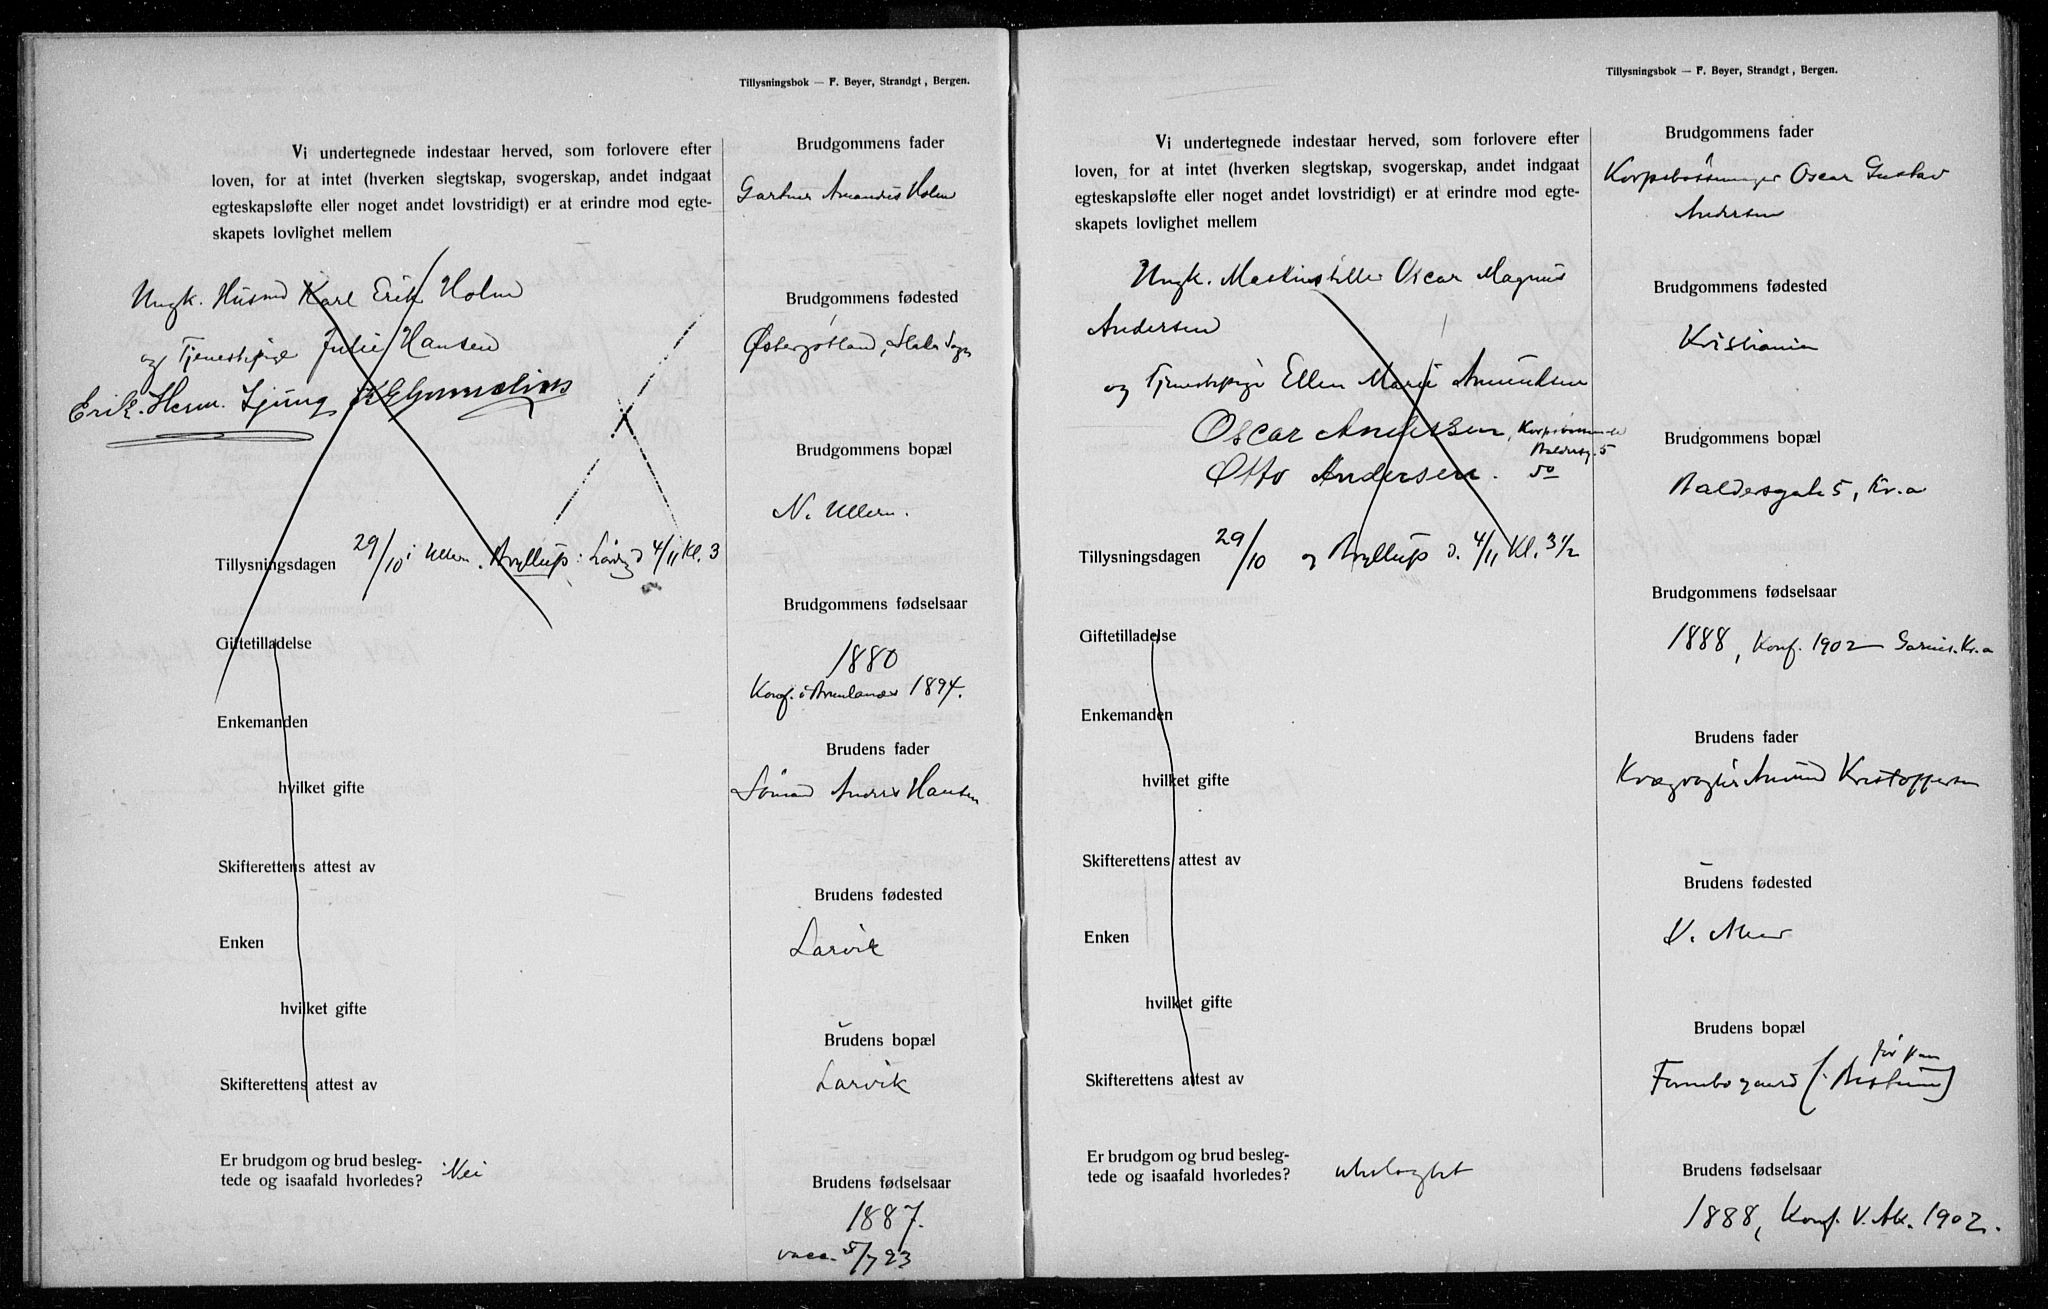 Tillysningsbok — F. Beyer, Strandgt, Bergen.
Vi undertegnede indestaar herved, som forlovere efter
loven, for at intet (hverken slegtskap, svogerskap, andet indgaat
egteskapsløfte eller noget andet lovstridigt) er at erindre mod egte-
skapets lovlighet mellem
Ungk. Husmd Karl Erik Holm
og Tjenestepige Julie Hansen
Erik. Herm. Ljung
Tillysningsdagen 29/10 i Ullern. Bryllup: Lørdg d 4/11 Kl. 3
Giftetilladelse
Enkemanden
hvilket gifte
Skifterettens attest av
Enken
hvilket gifte
Skifterettens attest av
Er brudgom og brud besleg-
tede og isaafald hvorledes? Nei
Brudgommens fader
Gartner Amandus Holm
Brudgommens fødested
Østergøtland,
Brudgommens bopæl
N. Ullern.
Brudgommens fødselsaar
1880
Konf. i 1894.
Brudens fader
Sømand Andrs Hansen
Brudens fødested
Larvik
Brudens bopæl
Larvik
Brudens fødselsaar
1887.
vacc. 5/7 93
Tillysningsbok — F. Beyer, Strandgt, Bergen.
Vi undertegnede indestaar herved, som forlovere efter
loven, for at intet (hverken slegtskap, svogerskap, andet indgaat
egteskapsløfte eller noget andet lovstridigt) er at erindre mod egte-
skapets lovlighet mellem
Ungk. Maskinstiller Oscar Magnus
Andersen
og Tjenestepige Ellen Marie Amundsen
Oscar Andersen, Korpsbøssmager
Baldersg. 5
Otto Andersen. do
Tillysningsdagen 29/10 og Bryllup d. 4/11 Kl. 3 1/2
Giftetilladelse
Enkemanden
hvilket gifte
Skifterettens attest av
Enken
hvilket gifte
Skifterettens attest av
Er brudgom og brud besleg-
tede og isaafald hvorledes? ubeslegtet
Brudgommens fader
Korpsbøssmager Oscar Gustav
Andersen
Brudgommens fødested
Kristiania
Brudgommens bopæl
Baldersgate 5, Kr.a
Brudgommens fødselsaar
1888, Konf. 1902 Garnis. Kr.a
Brudens fader
Kvægrøgter Amund Kristoffersen
Brudens fødested
V. Aker
Brudens bopæl
før paa
Fornebogaard (Bestum)
Brudens fødselsaar
1888, Konf. V. Ak. 1902.